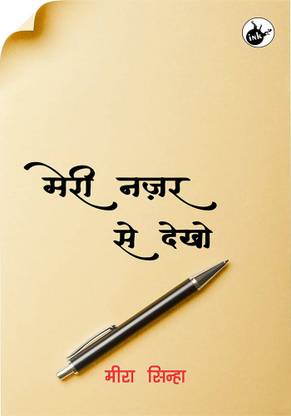 ink
मेरी नज़र
से देखो
मीरा सिन्हा